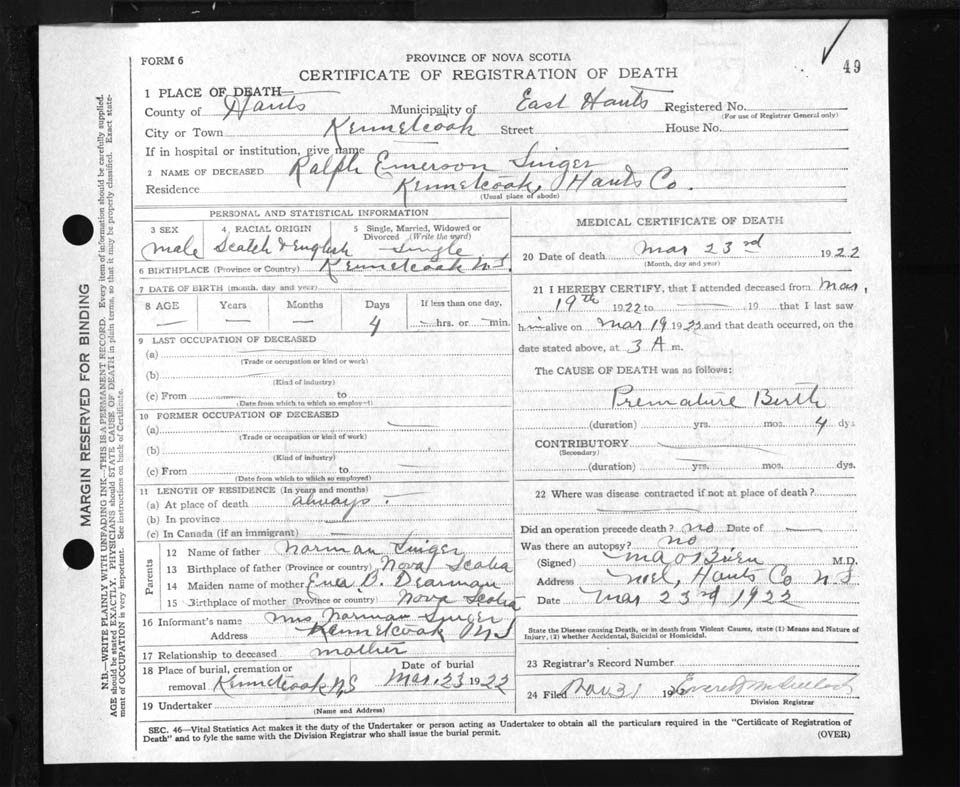 49
FORM 6
PROVINCE OF NOVA SCOTIA
CERTIFICATE OF REGISTRATION OF DEATH
1 PLACE OF DEATH—
County of Hants Municipality of East Hants Registered No.
(For use of Registrar General only)
City or Town Kennetcook Street House No.
If in hospital or institution, give name
2 NAME OF DECEASED Ralph Emerson Singer
Residence Kennetcook, Hants Co.
(Usual place of abode)
PERSONAL AND STATISTICAL INFORMATION
3 SEX 4 RACIAL ORIGIN 5 Single, Married, Widowed or Divorced (Write the word)
male Scotch & English Single
6 BIRTHPLACE (Province or Country) Kennetcook N.S.
7 DATE OF BIRTH (month, day and year)
8 AGE Years Months Days If less than one day,
— — — 4 — hrs. or — min.
9 LAST OCCUPATION OF DECEASED
(a)
(Trade or occupation or kind or work)
(b)
(Kind of industry)
(c) From to
(Date from which to which so employed)
10 FORMER OCCUPATION OF DECEASED
(a)
(Trade or occupation or kind of work)
(b)
(Kind of industry)
(c) From to
(Date from which to which so employed)
11 LENGTH OF RESIDENCE (In years and months)
(a) At place of death always.
(b) In province
(c) In Canada (if an immigrant)
Parents
12 Name of father Norman Singer
13 Birthplace of father (Province or country) Nova Scotia
14 Maiden name of mother B. Dearman
15 Birthplace of mother (Province or country) Nova Scotia
16 Informant's name Mrs Norman Singer
Address Kennetcook N.S
17 Relationship to deceased mother
18 Place of burial, cremation or removal Kennetcook N.S Date of burial Mar. 23 1922
19 Undertaker
(Name and Address)
MEDICAL CERTIFICATE OF DEATH
20 Date of death Mar 23rd 1922
(Month, day and year)
21 I HEREBY CERTIFY, that I attended deceased from Mar,
19th 1922 to — 19 — that I last saw
him alive on Mar 19 1922 and that death occurred, on the
date stated above, at 3 A m.
The CAUSE OF DEATH was as follows:
Premature Birth
(duration) yrs. mos. 4 dys
CONTRIBUTORY
(Secondary)
(duration) yrs. mos. dys.
22 Where was disease contracted if not at place of death?
Did an operation precede death? no Date of
Was there an autopsy? no
(Signed) M A O'Brien M.D.
Address Noel, Hants Co N.S
Date Mar 23rd 1922
State the Disease causing Death, or in death from Violent Causes, state (1) Means and Nature of Injury, (2) whether Accidental, Suicidal or Homicidal.
23 Registrar's Record Number
24 Filed 31 19
Division Registrar
SEC. 46—Vital Statistics Act makes it the duty of the Undertaker or person acting as Undertaker to obtain all the particulars required in the "Certificate of Registration of
Death" and to fyle the same with the Division Registrar who shall issue the burial permit. (OVER)
MARGIN RESERVED FOR BINDING
N.B.—WRITE PLAINLY WITH UNFADING INK—THIS IS A PERMANENT RECORD. Every item of information should be carefully supplied.
AGE should be stated EXACTLY. PHYSICIANS should STATE CAUSE OF DEATH in plain terms, so that it may be properly classified. Exact state-
ment of OCCUPATION is very important. See instructions on back of Certificate.